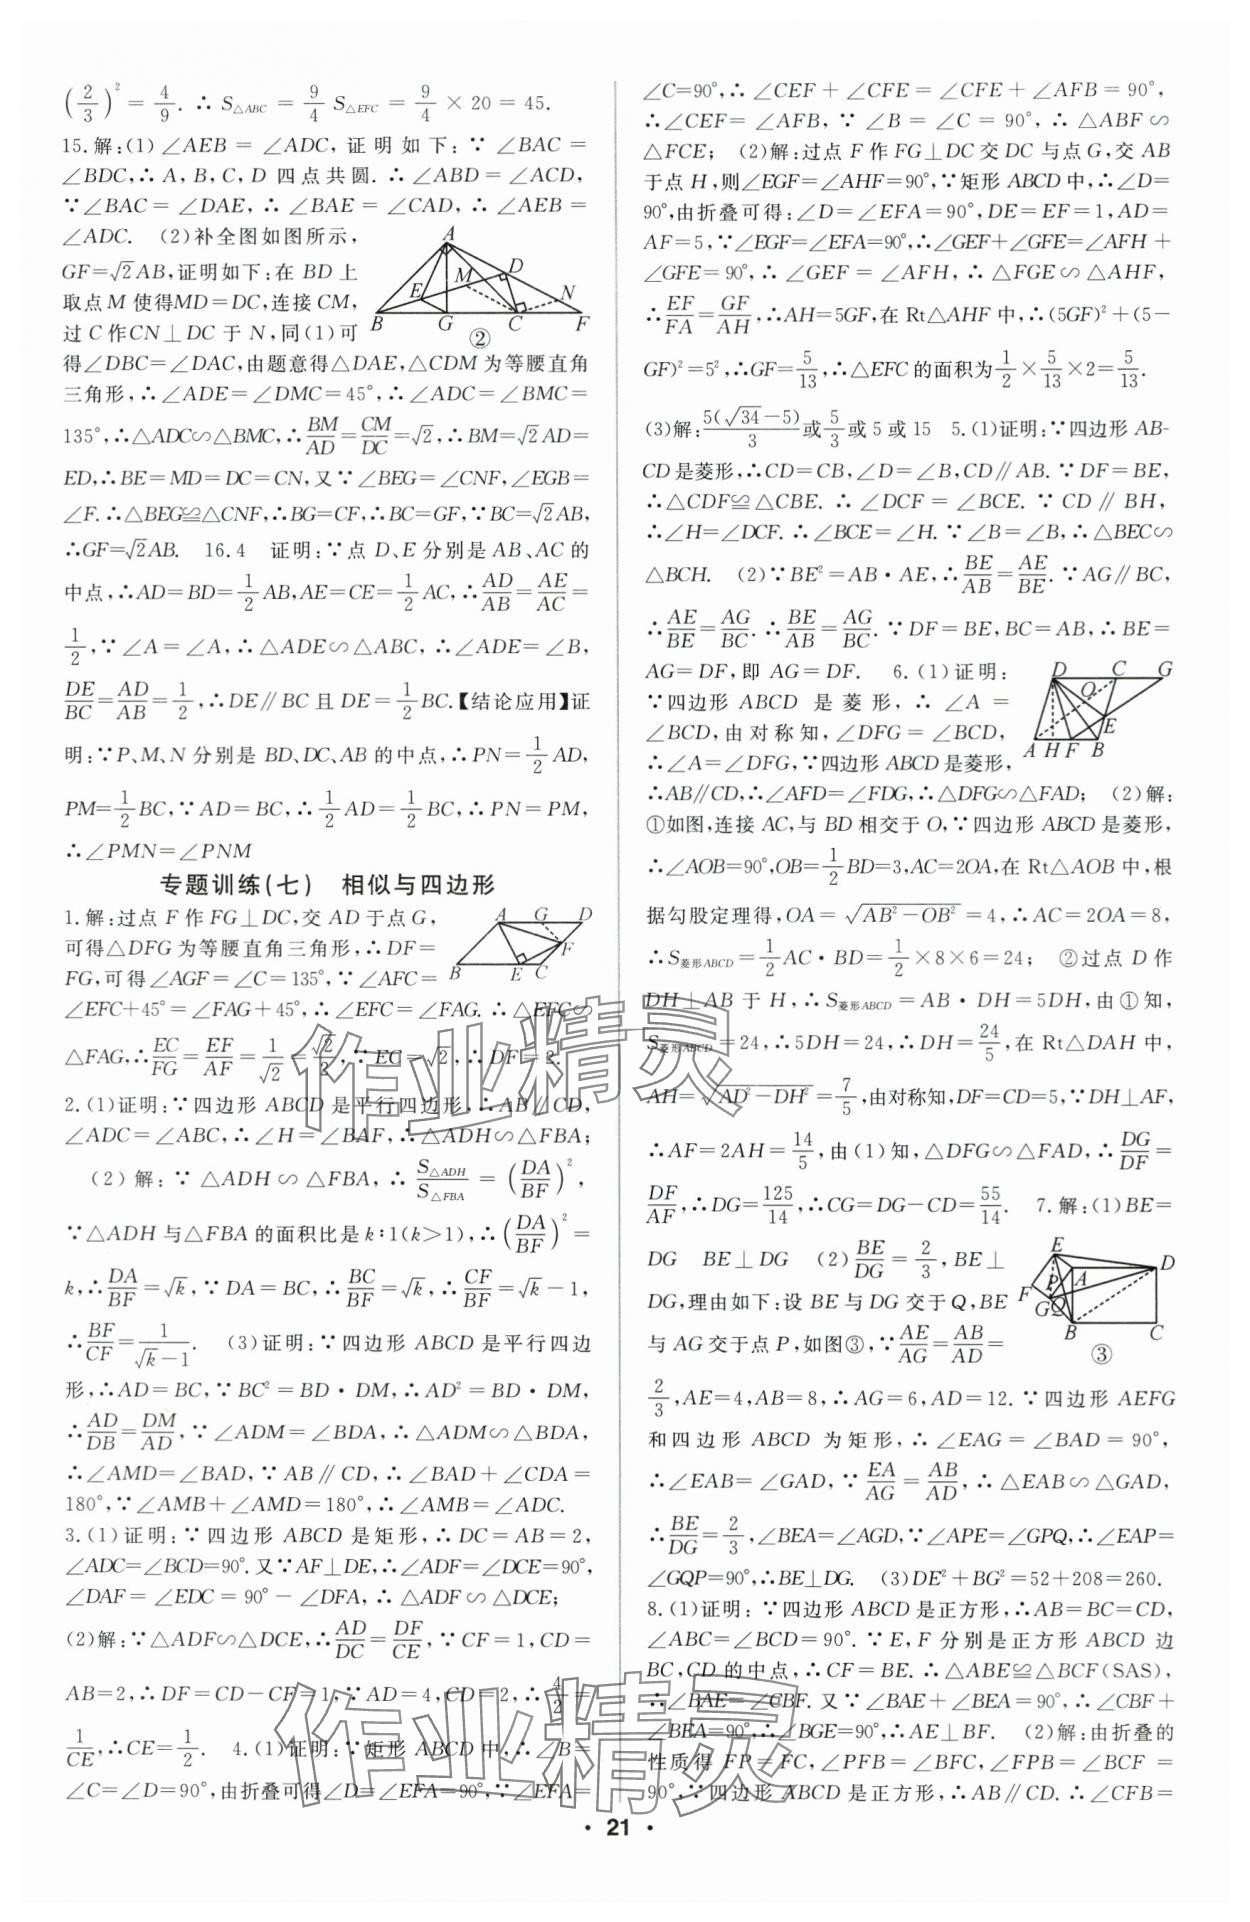 (2/3)²=4/9. ∴ S△ABC = 9/4 S△EFC = 9/4 × 20 = 45.
15.解:(1) ∠AEB = ∠ADC, 证明如下: ∵ ∠BAC =
∠BDC,∴ A, B, C, D 四点共圆. ∴ ∠ABD = ∠ACD,
∵∠BAC = ∠DAE, ∴ ∠BAE = ∠CAD, ∴ ∠AEB =
∠ADC. (2)补全图如图所示,
GF=√2AB,证明如下:在 BD 上
取点 M 使得MD=DC,连接 CM,
过 C 作CN⊥DC 于 N,同(1)可
得∠DBC=∠DAC,由题意得△DAE,△CDM 为等腰直角
三角形,∴∠ADE=∠DMC=45°,∴∠ADC=∠BMC=
135°,∴△ADC∽△BMC,∴BM/AD=CM/DC=√2,∴BM=√2AD=
ED,∴BE=MD=DC=CN,又∵∠BEG=∠CNF,∠EGB=
∠F.∴△BEG≌△CNF,∴BG=CF,∴BC=GF,∵BC=√2AB,
∴GF=√2AB. 16.4 证明:∵点 D、E 分别是 AB、AC 的
中点,∴AD=BD=1/2AB,AE=CE=1/2AC,∴AD/AB=AE/AC=
1/2,∵∠A=∠A,∴△ADE∽△ABC,∴∠ADE=∠B,
DE/BC=AD/AB=1/2,∴DE∥BC 且 DE=1/2BC.【结论应用】证
明:∵P、M、N 分别是 BD、DC、AB 的中点,∴PN=1/2AD,
PM=1/2BC,∵AD=BC,∴1/2AD=1/2BC,∴PN=PM,
∴∠PMN=∠PNM
专题训练(七) 相似与四边形
1.解:过点 F 作 FG⊥DC,交 AD 于点 G,
可得△DFG 为等腰直角三角形,∴DF=
FG,可得∠AGF=∠C=135°,∵∠AFC=
∠EFC+45°=∠FAG+45°,∴∠EFC=∠FAG. ∴△EFC∽
△FAG,∴EC/FG=EF/AF=1/√2=√2/2,∵EC=√2,∴DF=2.
2.(1)证明:∵四边形 ABCD 是平行四边形,∴AB∥CD,
∠ADC=∠ABC,∴∠H=∠BAF,∴△ADH∽△FBA;
(2)解:∵ △ADH ∽ △FBA, ∴ S△ADH/S△FBA = (DA/BF)²,
∵△ADH 与△FBA 的面积比是 k∶1(k>1),∴(DA/BF)²=
k,∴DA/BF=√k,∵DA=BC,∴BC/BF=√k,∴CF/BF=√k-1,
∴BF/CF=1/(√k-1). (3)证明:∵四边形 ABCD 是平行四边
形,∴AD=BC,∵BC²=BD·DM,∴AD²=BD·DM,
∴AD/DB=DM/AD,∵∠ADM=∠BDA,∴△ADM∽△BDA,
∴∠AMD=∠BAD,∵AB∥CD,∴∠BAD+∠CDA=
180°,∵∠AMB+∠AMD=180°,∴∠AMB=∠ADC.
3.(1)证明:∵四边形 ABCD 是矩形,∴DC=AB=2,
∠ADC=∠BCD=90°.又∵AF⊥DE,∴∠ADF=∠DCE=90°,
∠DAF = ∠EDC = 90° - ∠DFA, ∴ △ADF ∽ △DCE;
(2)解:∵△ADF∽△DCE,∴AD/DC=DF/CE,∵CF=1,CD=
AB=2,∴DF=CD-CF=1,∵AD=4,CD=2,∴4/2=
1/CE,∴CE=1/2. 4.(1)证明:∵矩形 ABCD 中,∴∠B=
∠C=∠D=90°,由折叠可得∠D=∠EFA=90°,∵∠EFA=
∠C=90°,∴ ∠CEF + ∠CFE = ∠CFE + ∠AFB = 90°,
∴∠CEF= ∠AFB, ∵ ∠B = ∠C = 90°, ∴ △ABF ∽
△FCE; (2)解:过点 F 作 FG⊥DC 交 DC 与点 G,交 AB
于点 H,则∠EGF=∠AHF=90°,∵矩形 ABCD 中,∴∠D=
90°,由折叠可得:∠D=∠EFA=90°,DE=EF=1,AD=
AF=5,∵∠EGF=∠EFA=90°,∴∠GEF+∠GFE=∠AFH+
∠GFE= 90°, ∴ ∠GEF = ∠AFH, ∴ △FGE ∽ △AHF,
∴EF/FA=GF/AH,∴AH=5GF,在 Rt△AHF 中,∴(5GF)²+(5-
GF)²=5²,∴GF=5/13,∴△EFC 的面积为1/2×5/13×2=5/13.
(3)解:5(√34-5)/3或5/3或 5 或 15 5.(1)证明:∵四边形 AB-
CD 是菱形,∴CD=CB,∠D=∠B,CD∥AB.∵DF=BE,
∴△CDF≌△CBE. ∴ ∠DCF = ∠BCE. ∵ CD ∥ BH,
∴∠H=∠DCF.∴∠BCE=∠H.∵∠B=∠B,∴△BEC∽
△BCH. (2)∵BE²=AB·AE,∴BE/AB=AE/BE.∵AG∥BC,
∴AE/BE=AG/BC.∴BE/AB=AG/BC.∵DF=BE,BC=AB,∴BE=
AG=DF,即 AG=DF. 6.(1)证明:
∵四边形 ABCD 是菱形,∴∠A=
∠BCD,由对称知,∠DFG=∠BCD,
∴∠A=∠DFG,∵四边形 ABCD是菱形,
∴AB∥CD,∴∠AFD=∠FDG,∴△DFG∽△FAD; (2)解:
①如图,连接 AC,与 BD 相交于 O,∵四边形 ABCD 是菱形,
∴∠AOB=90°,OB=1/2BD=3,AC=2OA,在 Rt△AOB 中,根
据勾股定理得,OA=√(AB²-OB²)=4,∴AC=2OA=8,
∴S菱形ABCD=1/2AC·BD=1/2×8×6=24; ②过点 D 作
DH⊥AB 于 H,∴S菱形ABCD=AB·DH=5DH,由①知,
S菱形ABCD=24,∴5DH=24,∴DH=24/5,在 Rt△DAH 中,
AH=√(AD²-DH²)=7/5,由对称知,DF=CD=5,∵DH⊥AF,
∴AF=2AH=14/5,由(1)知,△DFG∽△FAD,∴DG/DF=
DF/AF,∴DG=125/14,∴CG=DG-CD=55/14. 7.解:(1)BE=
DG BE⊥DG (2)BE/DG=2/3,BE⊥
DG,理由如下:设 BE 与 DG 交于 Q,BE
与 AG 交于点 P,如图③,∵AE/AG=AB/AD=
2/3,AE=4,AB=8,∴AG=6,AD=12.∵四边形 AEFG
和四边形 ABCD 为矩形,∴∠EAG=∠BAD=90°,
∴∠EAB=∠GAD,∵EA/AG=AB/AD,∴△EAB∽△GAD,
∴BE/DG=2/3,∠BEA=∠AGD,∵∠APE=∠GPQ,∴∠EAP=
∠GQP=90°,∴BE⊥DG. (3)DE²+BG²=52+208=260.
8.(1)证明:∵四边形 ABCD 是正方形,∴AB=BC=CD,
∠ABC=∠BCD=90°.∵E,F 分别是正方形 ABCD 边
BC,CD 的中点,∴CF=BE.∴△ABE≌△BCF(SAS),
∴∠BAE=∠CBF.又∵∠BAE+∠BEA=90°,∴∠CBF+
∠BEA=90°,∴∠BGE=90°,∴AE⊥BF. (2)解:由折叠的
性质得 FP=FC,∠PFB=∠BFC,∠FPB=∠BCF=
90°,∵四边形 ABCD 是正方形,∴AB∥CD.∴∠CFB=
· 21 ·